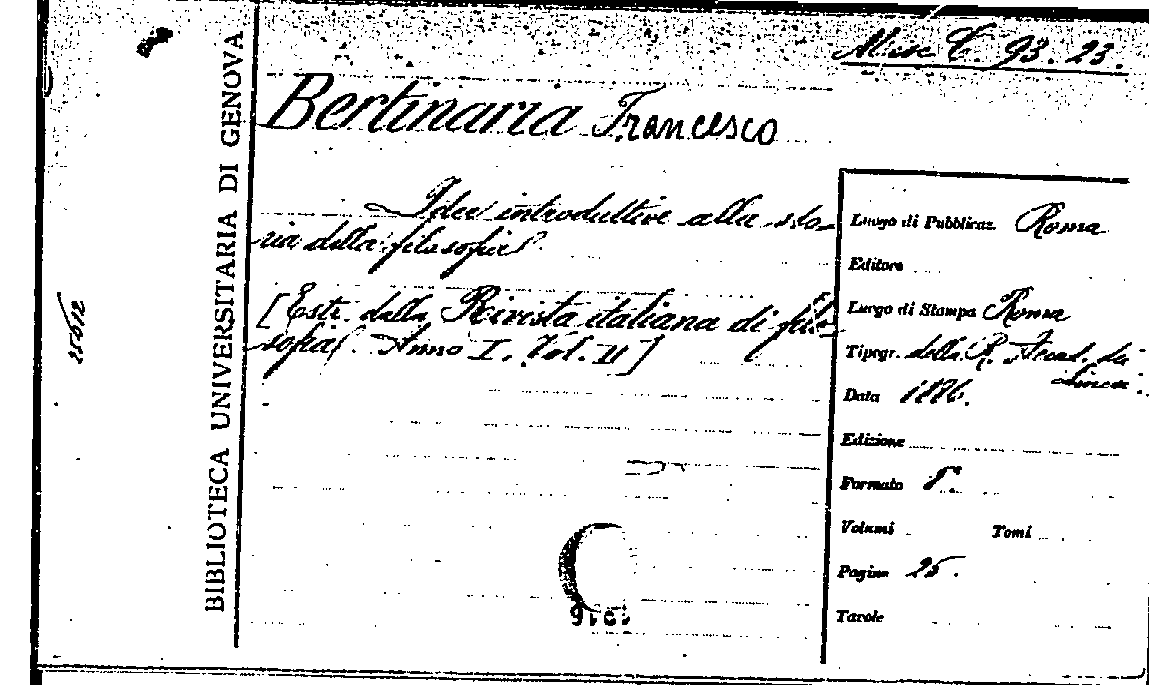 Misc. C. 93. 23.
BIBLIOTECA UNIVERSITARIA DI GENOVA
Bertinaria Francesco
Idee introduttive alla sto-
ria della filosofia.
[Estr. dalla Rivista italiana di filo-
sofia. Anno I. Vol. II]
Luogo di Pubblicaz. Roma
Editore
Luogo di Stampa Roma
Tipogr. della R. Accad. dei
Lincei.
Data 1886.
Edizione
Formato 8°.
Volumi Tomi
Pagine 25.
Tavole